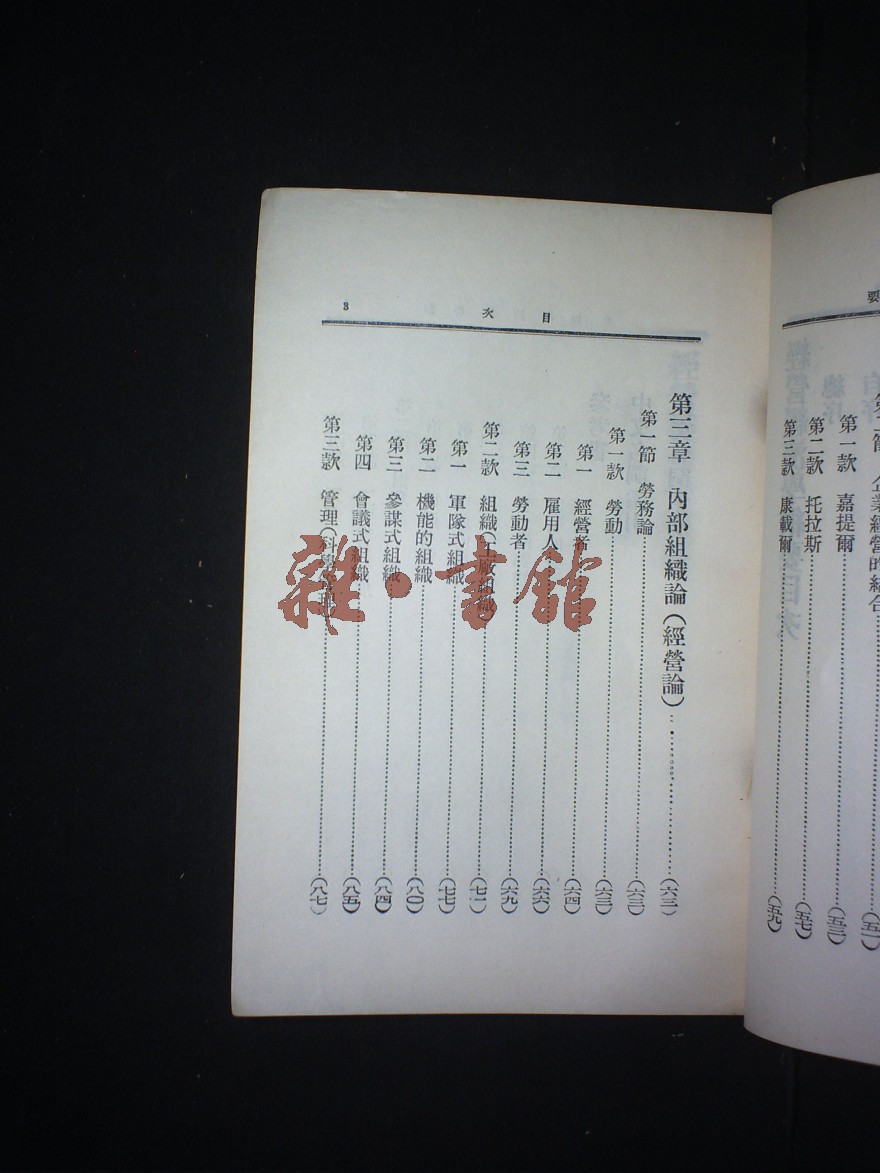 要
第二節 企業經營的結合 (五一)
第一款 嘉提爾 (五三)
第二款 托拉斯 (五七)
第三款 康載爾 (五九)
目次 3
第三章 內部組織論(經營論) (六三)
第一節 勞務論 (六三)
第一款 勞動 (六三)
第一 經營者 (六四)
第二 雇用人 (六六)
第三 勞動者 (六九)
第二款 組織(工廠組織) (七一)
第一 軍隊式組織 (七七)
第二 機能的組織 (八〇)
第三 參謀式組織 (八四)
第四 會議式組織 (八五)
第三款 管理(科學管理) (八七)
雜·書館